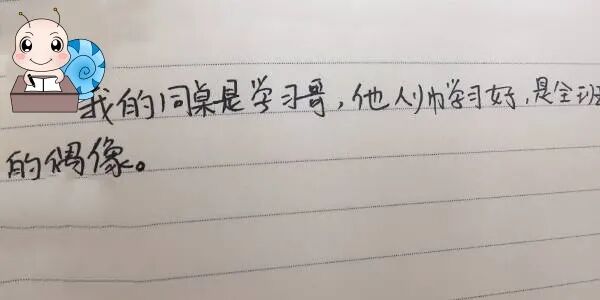 我的同桌是学习哥，他人帅学习好，是全班
的偶像。